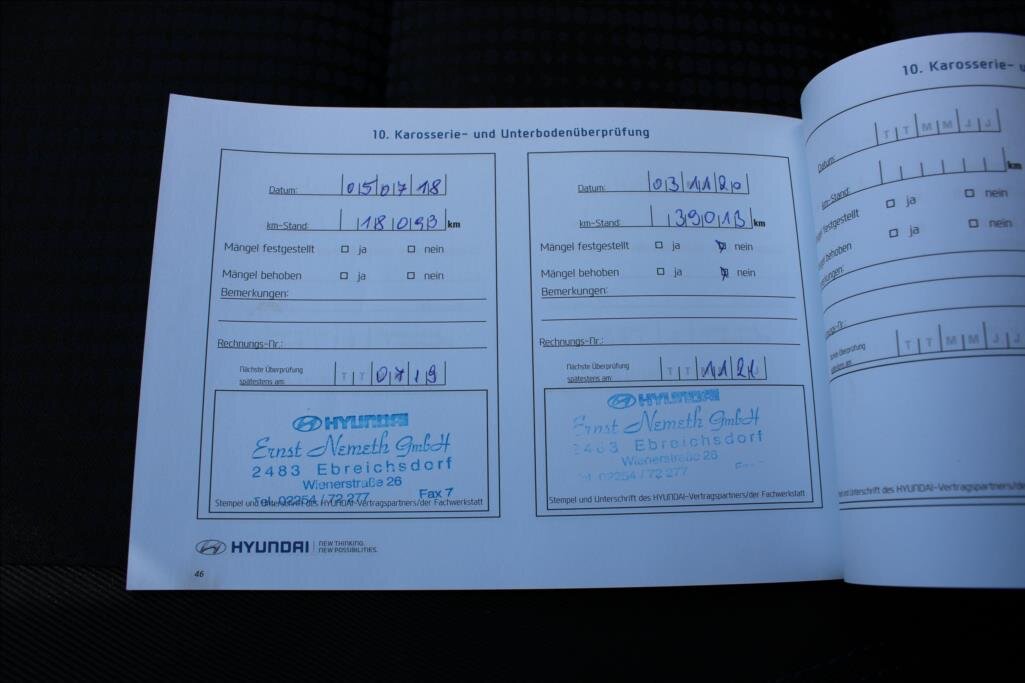 10. Karosserie- und Unterbodenüberprüfung
Datum: 05 07 18
km-Stand: 18093 km
Mängel festgestellt ja nein
Mängel behoben ja nein
Bemerkungen:
Rechnungs-Nr.:
Nächste Überprüfung
spätestens am: T T 07 19
HYUNDAI
Ernst Nemeth GmbH
2483 Ebreichsdorf
Wienerstraße 26
Tel. 02254 / 72 277 Fax 7
Stempel und Unterschrift des HYUNDAI-Vertragspartners/der Fachwerkstatt
Datum: 03 11 20
km-Stand: 39013 km
Mängel festgestellt ja nein
Mängel behoben ja nein
Bemerkungen:
Rechnungs-Nr.:
Nächste Überprüfung
spätestens am: T T 11 21
HYUNDAI
Ernst Nemeth GmbH
2483 Ebreichsdorf
Wienerstraße 26
Tel. 02254 / 72 277
Stempel und Unterschrift des HYUNDAI-Vertragspartners/der Fachwerkstatt
HYUNDAI NEW THINKING.
NEW POSSIBILITIES.
46
10. Karosserie- u
Datum: T T M M J J
km-Stand: km
festgestellt ja nein
behoben ja nein
T T M M J J